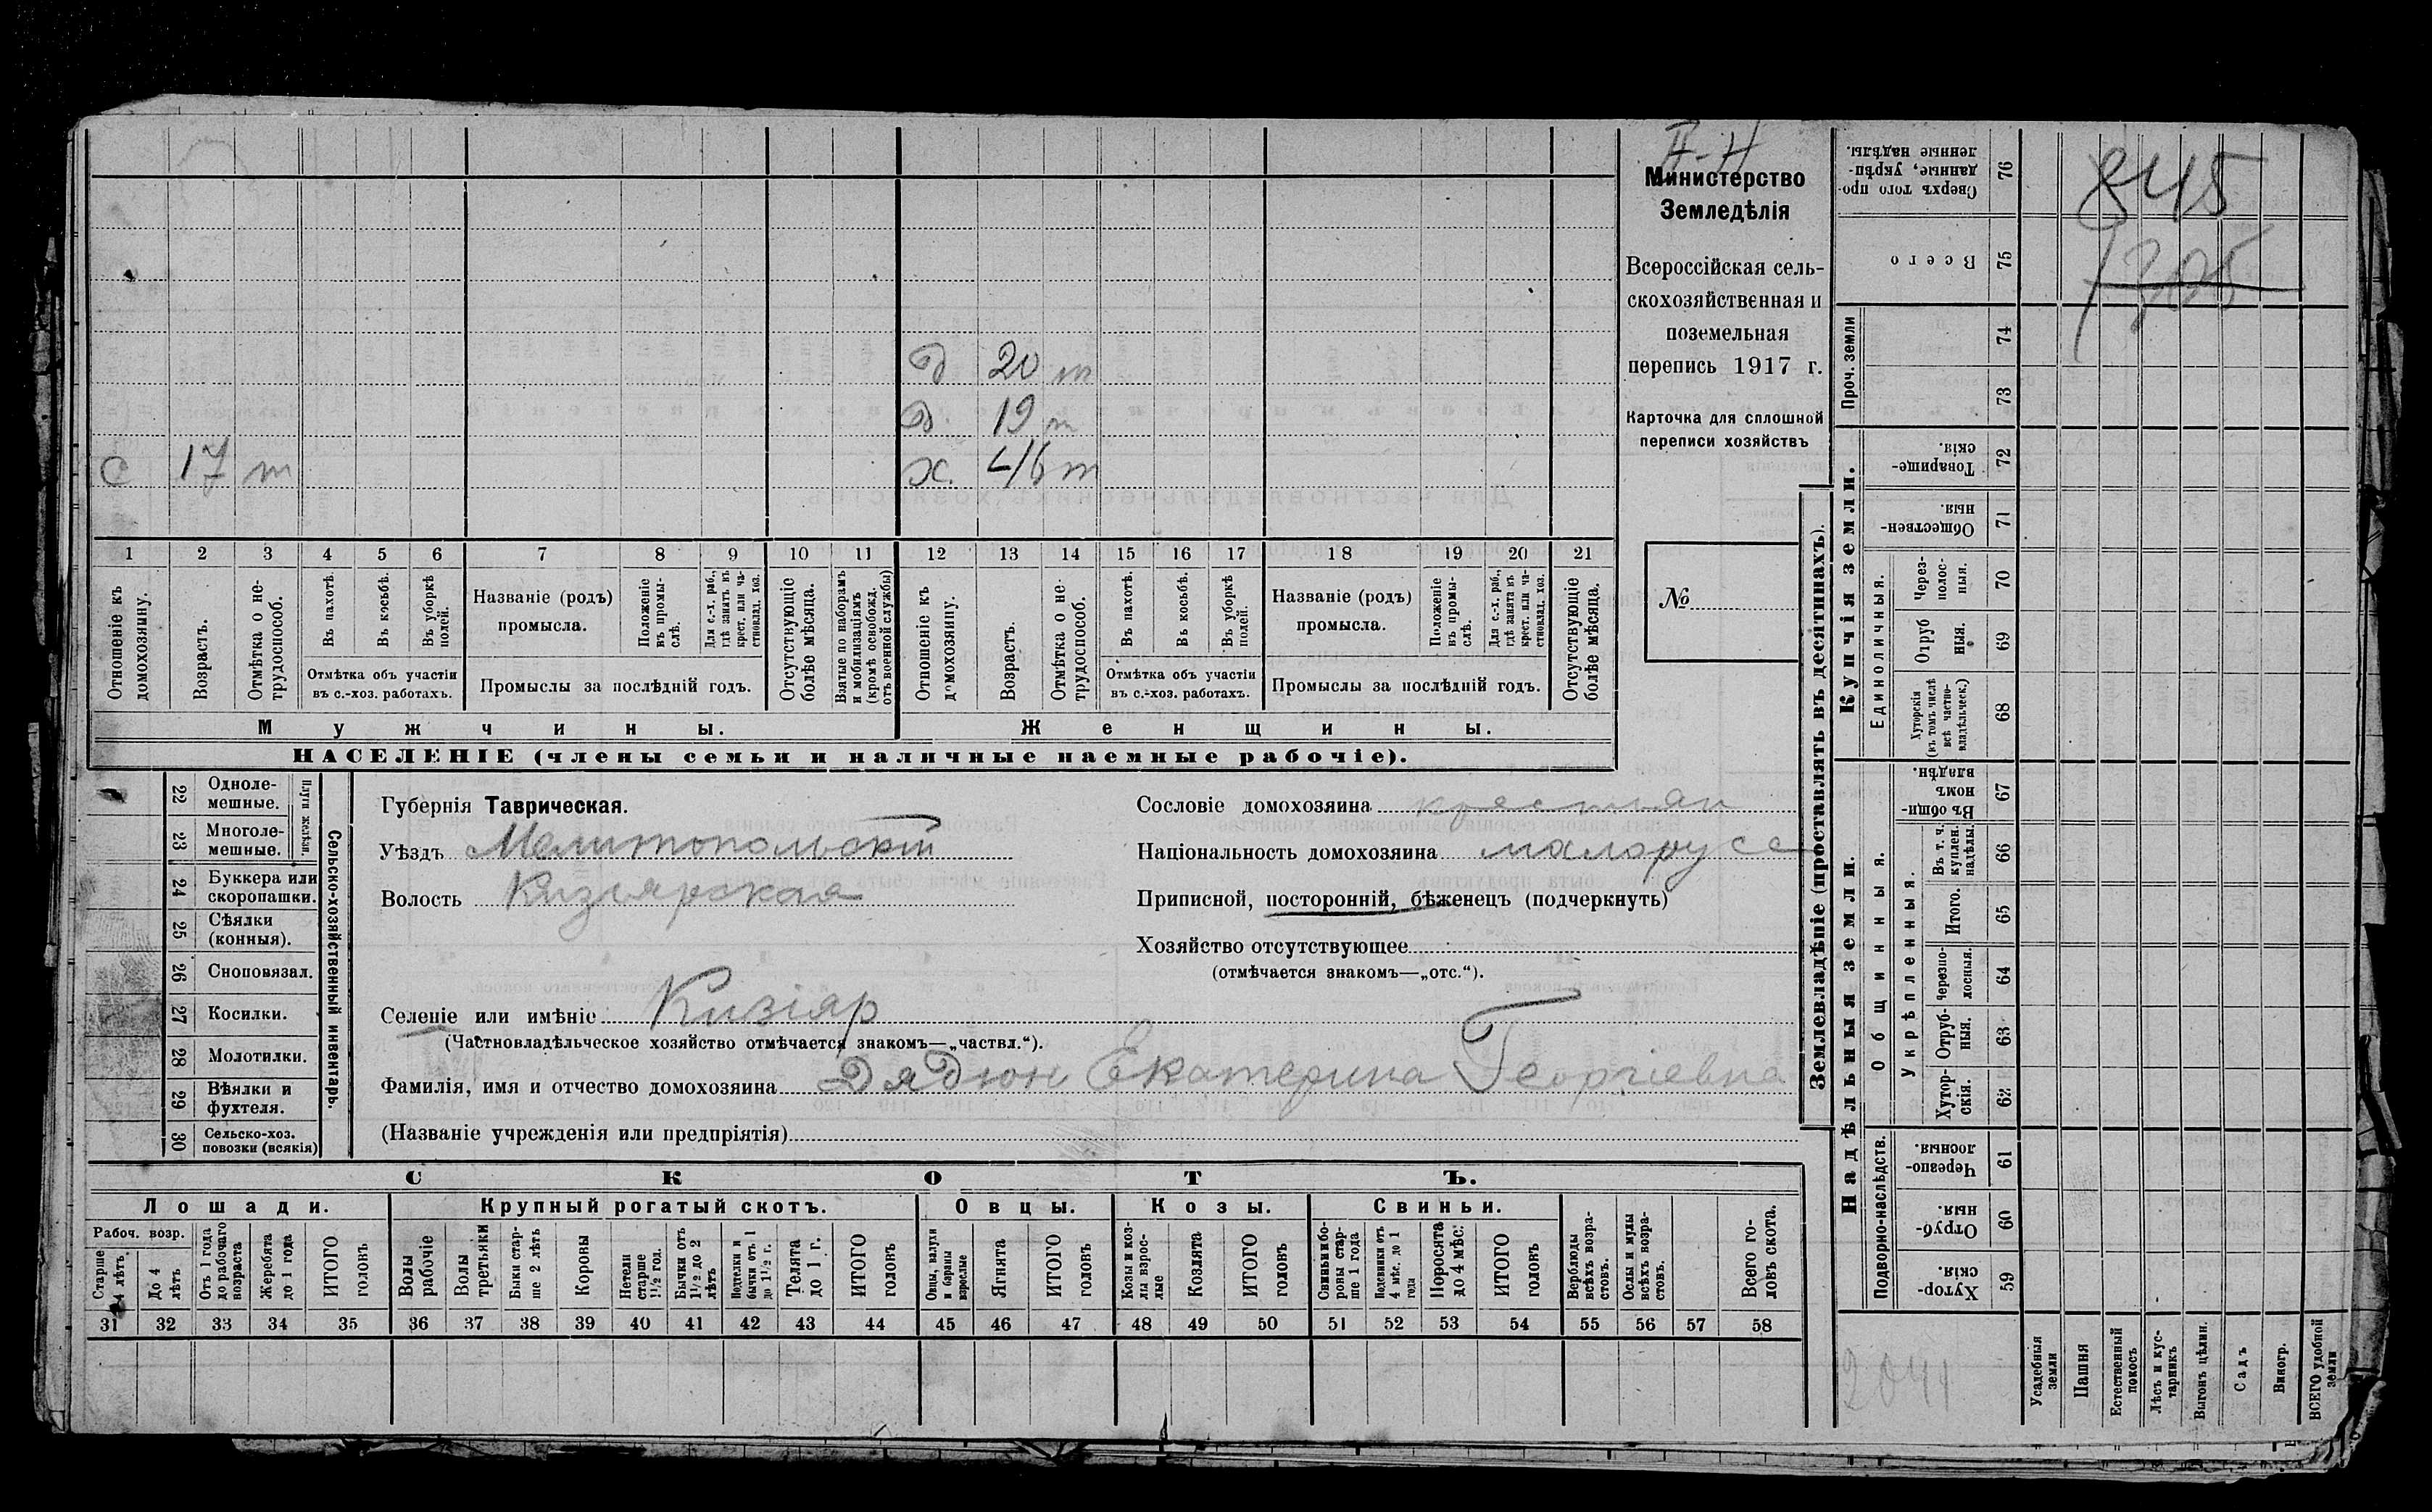 II-Н
Министерство
Земледѣлія
Всероссійская сель-
скохозяйственная и
поземельная
перепись 1917 г.
Карточка для сплошной
переписи хозяйствъ
№
д 20 т
д. 19 т
с 17 т х. 46 т
1 2 3 4 5 6 7 8 9 10 11 12 13 14 15 16 17 18 19 20 21
Отношеніе къ домохозяину.
Возрастъ.
Отмѣтка о не-
трудоспособ.
Въ пахотѣ.
Въ косьбѣ.
Въ уборкѣ полей.
Отмѣтка объ участіи
въ с.-хоз. работахъ.
Названіе (родъ)
промысла.
Положеніе въ промы-
слѣ.
Для с.-х. раб., гдѣ занятъ въ крест. или ча-
стновлад. хоз.
Промыслы за послѣдній годъ.
Отсутствующіе болѣе мѣсяца.
Взятые по наборамъ и мобилизаціямъ (кромѣ освобожд. отъ военной службы)
Отношеніе къ домохозяину.
Возрастъ.
Отмѣтка о не-
трудоспособ.
Въ пахотѣ.
Въ косьбѣ.
Въ уборкѣ полей.
Отмѣтка объ участіи
въ с.-хоз. работахъ.
Названіе (родъ)
промысла.
Положеніе въ промы-
слѣ.
Для с.-х. раб., гдѣ занята въ крест. или ча-
стновлад. хоз.
Промыслы за послѣдній годъ.
Отсутствующіе болѣе мѣсяца.
Мужчины. Женщины.
НАСЕЛЕНІЕ (члены семьи и наличные наемные рабочіе).
Сельско-хозяйственный инвентарь.
Плуги желѣзн.
22 Одноле-
мешные.
23 Многоле-
мешные.
24 Буккера или
скоропашки.
25 Сѣялки
(конныя).
26 Сноповязал.
27 Косилки.
28 Молотилки.
29 Вѣялки и
фухтеля.
30 Сельско-хоз.
повозки (всякія)
Губернія Таврическая.
Уѣздъ Мелитопольскій
Волость Кизіярская
Сословіе домохозяина крестьян
Національность домохозяина малорусс
Приписной, посторонній, бѣженецъ (подчеркнуть)
Хозяйство отсутствующее
(отмѣчается знакомъ—„отс.“).
Селеніе или имѣніе Кизіяр
(Частновладѣльческое хозяйство отмѣчается знакомъ—„частвл.“).
Фамилія, имя и отчество домохозяина Дядюн Екатерина Георгіевна
(Названіе учрежденія или предпріятія)
СКОТЪ.
Лошади. Крупный рогатый скотъ. Овцы. Козы. Свиньи.
Рабоч. возр.
Старше 4 лѣтъ.
До 4 лѣтъ
Отъ 1 года до рабочаго возраста
Жеребята до 1 года
ИТОГО головъ
Волы рабочіе
Волы третьяки
Быки стар-
ше 2 лѣтъ
Коровы
Нетели старше 1½ год.
Бычки отъ 1½ до 2 лѣтъ
Подтелки и бычки отъ 1 до 1½ г.
Телята до 1 г.
ИТОГО головъ
Овцы, валухи и бараны взрослые
Ягнята
ИТОГО головъ
Козы и коз-
лы взрос-
лые
Козлята
ИТОГО головъ
Свиньи и бо-
ровы стар-
ше 1 года
Подсвинки отъ 4 мѣс. до 1 года
Поросята до 4 мѣс.
ИТОГО головъ
Верблюды всѣхъ возра-
стовъ.
Ослы и мулы всѣхъ возра-
стовъ.
Всего го-
ловъ скота.
31 32 33 34 35 36 37 38 39 40 41 42 43 44 45 46 47 48 49 50 51 52 53 54 55 56 57 58
Землевладѣніе (проставлять въ десятинахъ).
Купчія земли.
Надѣльныя земли.
Сверхъ того про-
данные, укрѣп-
ленные надѣлы. 76
Всего 75
Проч. земли
74
73
Товарище-
скія. 72
Обществен-
ныя. 71
Единоличныя.
Через-
полос-
ныя. 70
Отруб
ныя. 69
Хуторскія (въ томъ числѣ всѣ частно-
владѣльческ.) 68
Общинныя.
Въ общи-
номъ владѣн. 67
Укрѣпленныя.
Въ т. ч. куплен. надѣлы. 66
Итого. 65
Черезпо-
лосныя. 64
Отруб-
ныя. 63
Хутор-
скія. 62
Подворно-наслѣдств.
Черезпо-
лосныя 61
Отруб-
ныя. 60
Хутор-
скія. 59
Усадебныя земли
Пашня
Естественный покосъ
Лѣсъ и кус-
тарникъ
Выгонъ цѣлин.
Садъ
Виногр.
ВСЕГО удобной земли
845
205